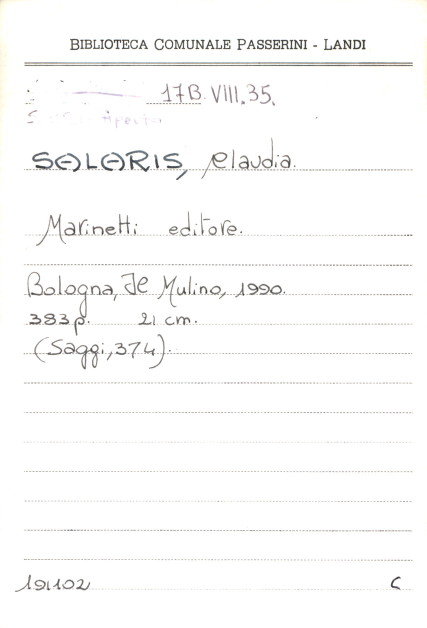 BIBLIOTECA COMUNALE PASSERINI - LANDI
17B. VIII.35.
Aperto
SALARIS, Claudia.
Marinetti editore.
Bologna, Il Mulino, 1990.
383 p. 21 cm.
(Saggi, 374).
191102 C